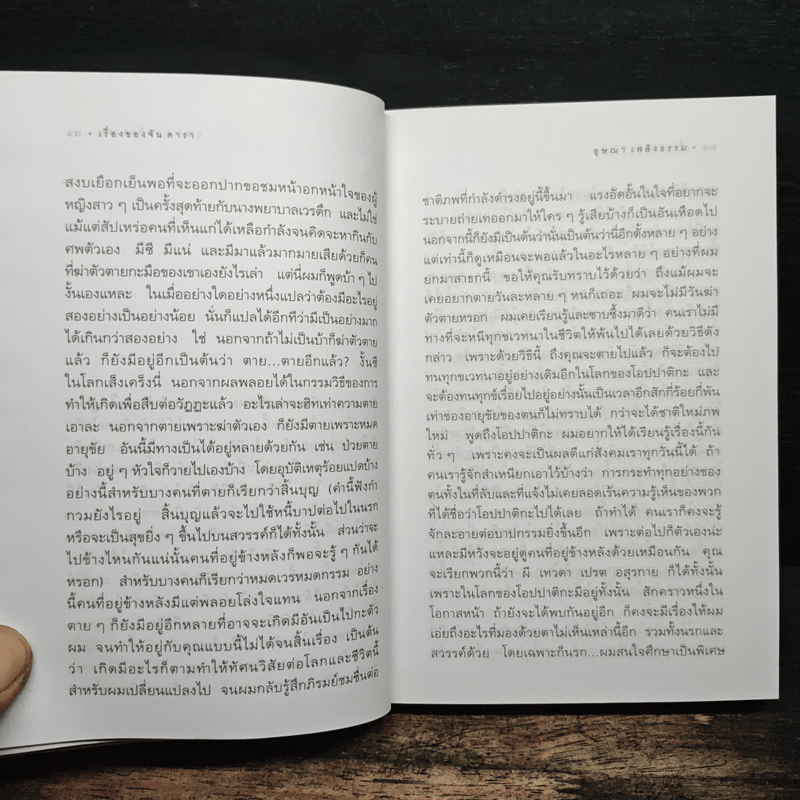 ๑๒ • เรื่องของจัน ดารา
สงบเยือกเย็นพอที่จะออกปากขอชมหน้าอกหน้าใจของผู้
หญิงสาว ๆ เป็นครั้งสุดท้ายกับนางพยาบาลเวรดึก และไม่ใช่
แม้แต่สัปเหร่อคนที่เห็นแก่ได้เหลือกำลังจนคิดจะหากินกับ
ศพตัวเอง มีซี มีแน่ และมีมาแล้วมากมายเสียด้วยก็คน
ที่ฆ่าตัวตายกะมือของเขาเองยังไรเล่า แต่นี่ผมก็พูดบ้า ๆ ไป
งั้นเองแหละ ในเมื่ออย่างใดอย่างหนึ่งแปลว่าต้องมีอะไรอยู่
สองอย่างเป็นอย่างน้อย นั่นก็แปลได้อีกทีว่ามีเป็นอย่างมาก
ได้เกินกว่าสองอย่าง ใช่ นอกจากถ้าไม่เป็นบ้าก็ฆ่าตัวตาย
แล้ว ก็ยังมีอยู่อีกเป็นต้นว่า ตาย...ตายอีกแล้ว? งั้นซี
ในโลกเส็งเคร็งนี่ นอกจากผลพลอยได้ในกรรมวิธีของการ
ทำให้เกิดเพื่อสืบต่อวัฏฏะแล้ว อะไรเล่าจะฮิทเท่าความตาย
เอาละ นอกจากตายเพราะฆ่าตัวเอง ก็ยังมีตายเพราะหมด
อายุขัย อันนี้มีทางเป็นได้อยู่หลายด้วยกัน เช่น ป่วยตาย
บ้าง อยู่ ๆ หัวใจก็วายไปเองบ้าง โดยอุบัติเหตุร้อยแปดบ้าง
อย่างนี้สำหรับบางคนที่ตายก็เรียกว่าสิ้นบุญ (คำนี้ฟังกำ
กวมยังไรอยู่ สิ้นบุญแล้วจะไปใช้หนี้บาปต่อไปในนรก
หรือจะเป็นสุขยิ่ง ๆ ขึ้นไปบนสวรรค์ก็ได้ทั้งนั้น ส่วนว่าจะ
ไปข้างไหนกันแน่นั้นคนที่อยู่ข้างหลังก็พอจะรู้ ๆ กันได้
หรอก) สำหรับบางคนก็เรียกว่าหมดเวรหมดกรรม อย่าง
นี้คนที่อยู่ข้างหลังมีแต่พลอยโล่งใจแทน นอกจากเรื่อง
ตาย ๆ ก็ยังมีอยู่อีกหลายที่อาจจะเกิดมีอันเป็นไปกะตัว
ผม จนทำให้อยู่กับคุณแบบนี้ไม่ได้จนสิ้นเรื่อง เป็นต้น
ว่า เกิดมีอะไรก็ตามทำให้ทัศนวิสัยต่อโลกและชีวิตนี้
สำหรับผมเปลี่ยนแปลงไป จนผมกลับรู้สึกภิรมย์ชมชื่นต่อ
อุษณา เพลิงธรรม •
ชาติภพที่กำลังดำรงอยู่นี้ขึ้นมา แรงอัดอั้นในใจที่อยากจะ
ระบายถ่ายเทออกมาให้ใคร ๆ รู้เสียบ้างก็เป็นอันเหือดไป
นอกจากนี้ก็ยังมีเป็นต้นว่านั่นเป็นต้นว่านี่อีกตั้งหลาย ๆ อย่าง
แต่เท่านี้ก็ดูเหมือนจะพอแล้วในอะไรหลาย ๆ อย่างที่ผม
ยกมาสาธกนี้ ขอให้คุณรับทราบไว้ด้วยว่า ถึงแม้ผมจะ
เคยอยากตายวันละหลาย ๆ หนก็เถอะ ผมจะไม่มีวันฆ่า
ตัวตายหรอก ผมเคยเรียนรู้และซาบซึ้งมาดีว่า คนเราไม่มี
ทางที่จะหนีทุกขเวทนาในชีวิตให้พ้นไปได้เลยด้วยวิธีดัง
กล่าว เพราะด้วยวิธีนี้ ถึงคุณจะตายไปแล้ว ก็จะต้องไป
ทนทุกขเวทนาอยู่อย่างเดิมอีกในโลกของโอปปาติกะ และ
จะต้องทนทุกข์เรื่อยไปอยู่อย่างนั้นเป็นเวลาอีกสักกี่ร้อยกี่พัน
เท่าของอายุขัยของตนก็ไม่ทราบได้ กว่าจะได้ชาติใหม่ภพ
ใหม่ พูดถึงโอปปาติกะ ผมอยากให้ได้เรียนรู้เรื่องนี้กัน
ทั่ว ๆ เพราะคงจะเป็นผลดีแก่สังคมเราทุกวันนี้ได้ ถ้า
คนเรารู้จักสำเหนียกเอาไว้บ้างว่า การกระทำทุกอย่างของ
ตนทั้งในที่ลับและที่แจ้งไม่เคยลอดเร้นความรู้เห็นของพวก
ที่ได้ชื่อว่าโอปปาติกะไปได้เลย ถ้าทำได้ คนเราก็คงจะรู้
จักละอายต่อบาปกรรมยิ่งขึ้นอีก เพราะต่อไปก็ตัวเองน่ะ
แหละมีหวังจะอยู่ดูคนที่อยู่ข้างหลังด้วยเหมือนกัน คุณ
จะเรียกพวกนี้ว่า ผี เทวดา เปรต อสุรกาย ก็ได้ทั้งนั้น
เพราะในโลกของโอปปาติกะมีอยู่ทั้งนั้น สักคราวหนึ่งใน
โอกาสหน้า ถ้ายังจะได้พบกันอยู่อีก ก็คงจะมีเรื่องให้ผม
เอ่ยถึงอะไรที่มองด้วยตาไม่เห็นเหล่านี้อีก รวมทั้งนรกและ
สวรรค์ด้วย โดยเฉพาะก็นรก...ผมสนใจศึกษาเป็นพิเศษ